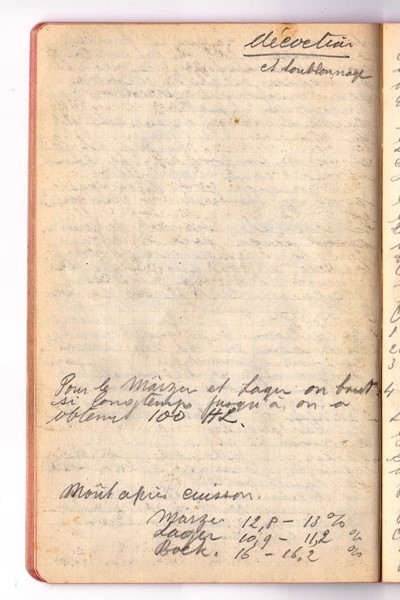 Décoction
et houblonnage
Pour le Märzen et Lager on bout
si longtemps jusqu'à on a
obtenu 100 HL.
Moût après cuisson.
Märzen 12,8 - 13 %
Lager 10,9 - 11,2 %
Bock. 16 - 16,2 %